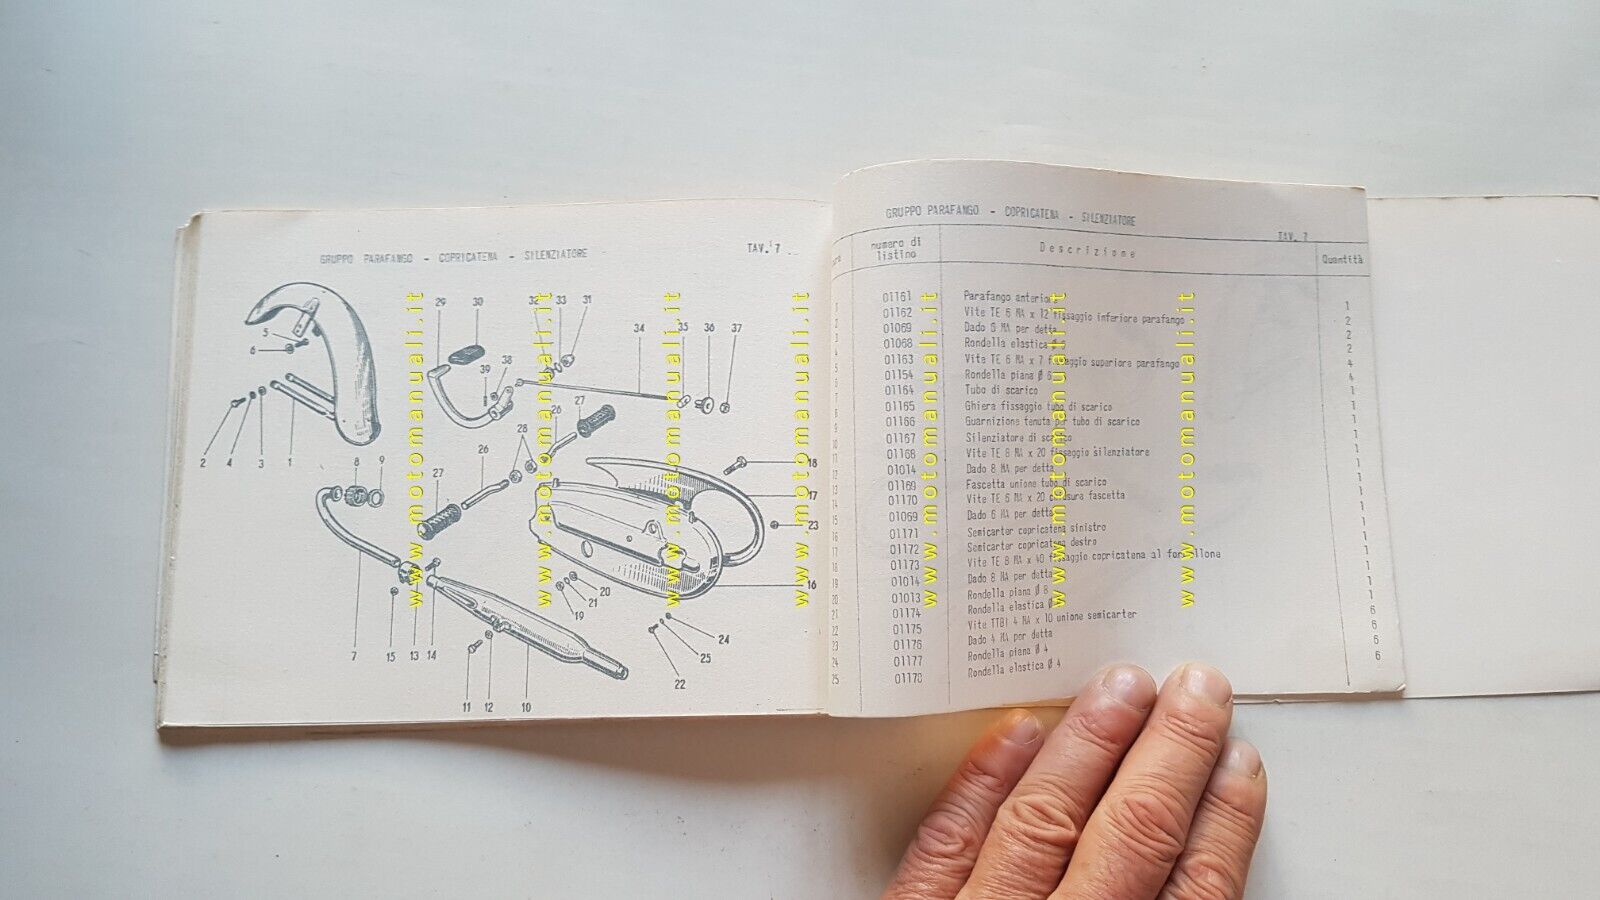 GRUPPO PARAFANGO - COPRICATENA - SILENZIATORE
TAV. 7
29 30 32 33 31
34 35 36 37
5
6
39 38
28 27
2 4 3 1
8 9
27 26 28
18
17
23
16
20
19 21
24
25
22
7 15 13 14
11 12 10
www.motomanuali.it
www.motomanuali.it
www.motomanuali.it
www.motomanuali.it
www.motomanuali.it
www.motomanuali.it
www.motomanuali.it
GRUPPO PARAFANGO - COPRICATENA - SILENZIATORE
TAV. 7
numero di listino Descrizione Quantità
1 01161 Parafango anteriore 1
2 01162 Vite TE 6 MA x 12 fissaggio inferiore parafango 2
3 01069 Dado 6 MA per detta 2
4 01068 Rondella elastica Ø 6 2
5 01163 Vite TE 6 MA x 7 fissaggio superiore parafango 4
6 01154 Rondella piana Ø 6 4
7 01164 Tubo di scarico 1
8 01165 Ghiera fissaggio tubo di scarico 1
9 01166 Guarnizione tenuta per tubo di scarico 1
10 01167 Silenziatore di scarico 1
11 01168 Vite TE 8 MA x 20 fissaggio silenziatore 1
12 01014 Dado 8 MA per detta 1
13 01169 Fascetta unione tubo di scarico 1
14 01170 Vite TE 6 MA x 20 chiusura fascetta 1
15 01069 Dado 6 MA per detta 1
16 01171 Semicarter copricatena sinistro 1
17 01172 Semicarter copricatena destro 1
18 01173 Vite TE 8 MA x 40 fissaggio copricatena al forcellone 1
19 01014 Dado 8 MA per detta 1
20 01013 Rondella piana Ø 8 1
21 01174 Rondella elastica Ø 1
22 01175 Vite TTBI 4 MA x 10 unione semicarter 6
23 01176 Dado 4 MA per detta 6
24 01177 Rondella piana Ø 4 6
25 01178 Rondella elastica Ø 4 6